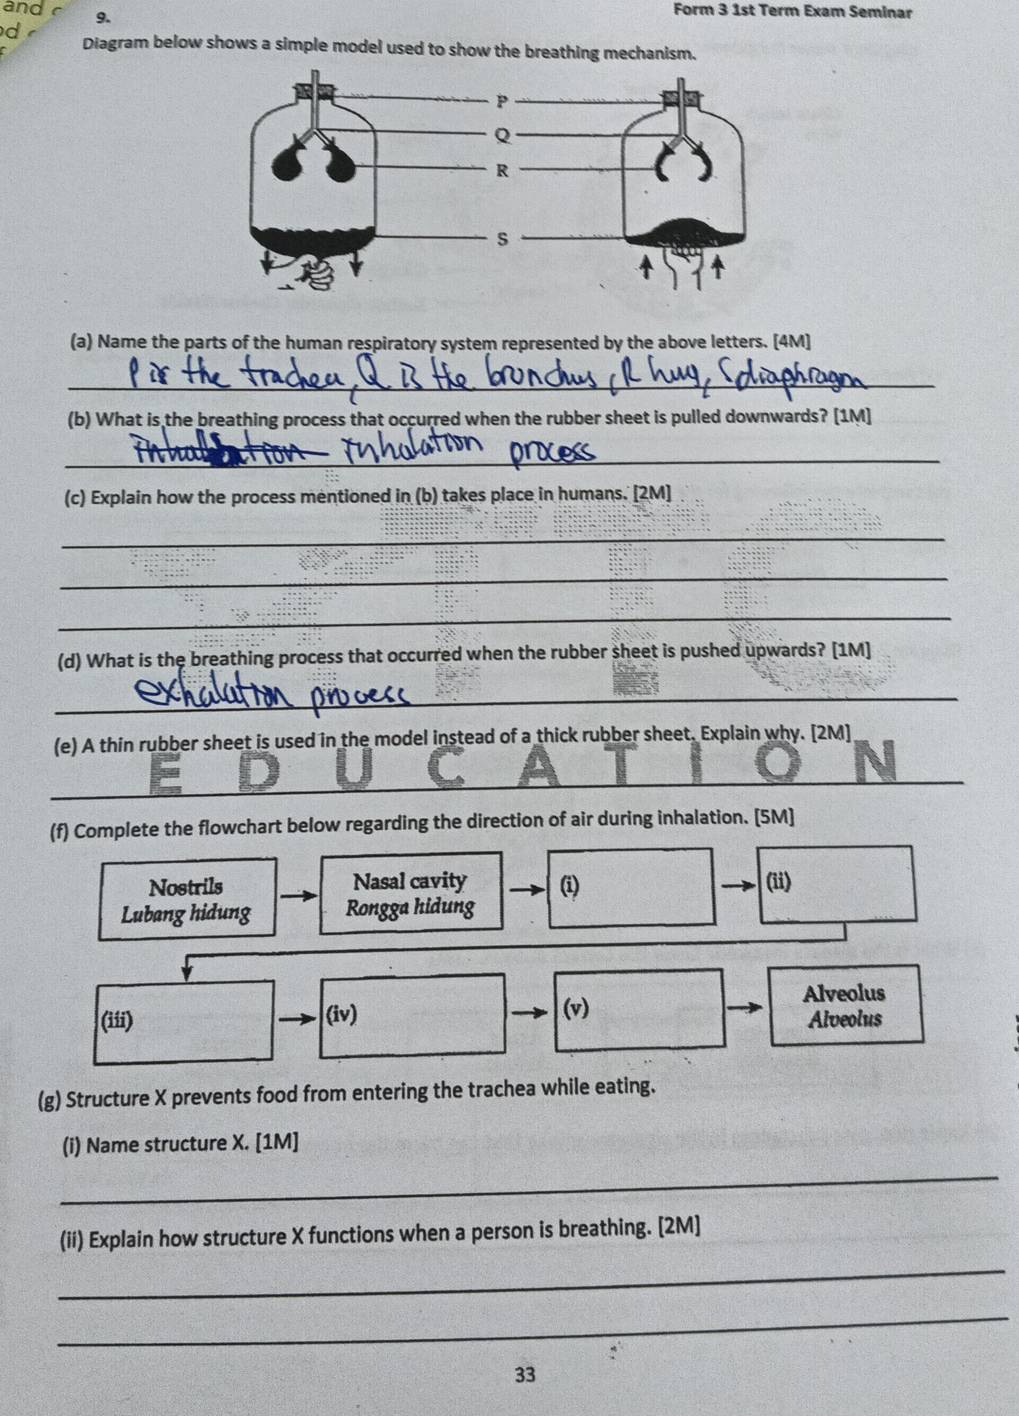 and
9.
Form 3 1st Term Exam Seminar
Diagram below shows a simple model used to show the breathing mechanism.
P
Q
R
S
(a) Name the parts of the human respiratory system represented by the above letters. [4M]
P is the trachea, Q is the bronchus, R lung, S diaphragm
(b) What is the breathing process that occurred when the rubber sheet is pulled downwards? [1M]
inhalation process
(c) Explain how the process mentioned in (b) takes place in humans. [2M]
(d) What is the breathing process that occurred when the rubber sheet is pushed upwards? [1M]
exhalation process
(e) A thin rubber sheet is used in the model instead of a thick rubber sheet. Explain why. [2M]
EDUCATION
(f) Complete the flowchart below regarding the direction of air during inhalation. [5M]
Nostrils
Lubang hidung
Nasal cavity
Rongga hidung
(i)
(ii)
(iii)
(iv)
(v)
Alveolus
Alveolus
(g) Structure X prevents food from entering the trachea while eating.
(i) Name structure X. [1M]
(ii) Explain how structure X functions when a person is breathing. [2M]
33